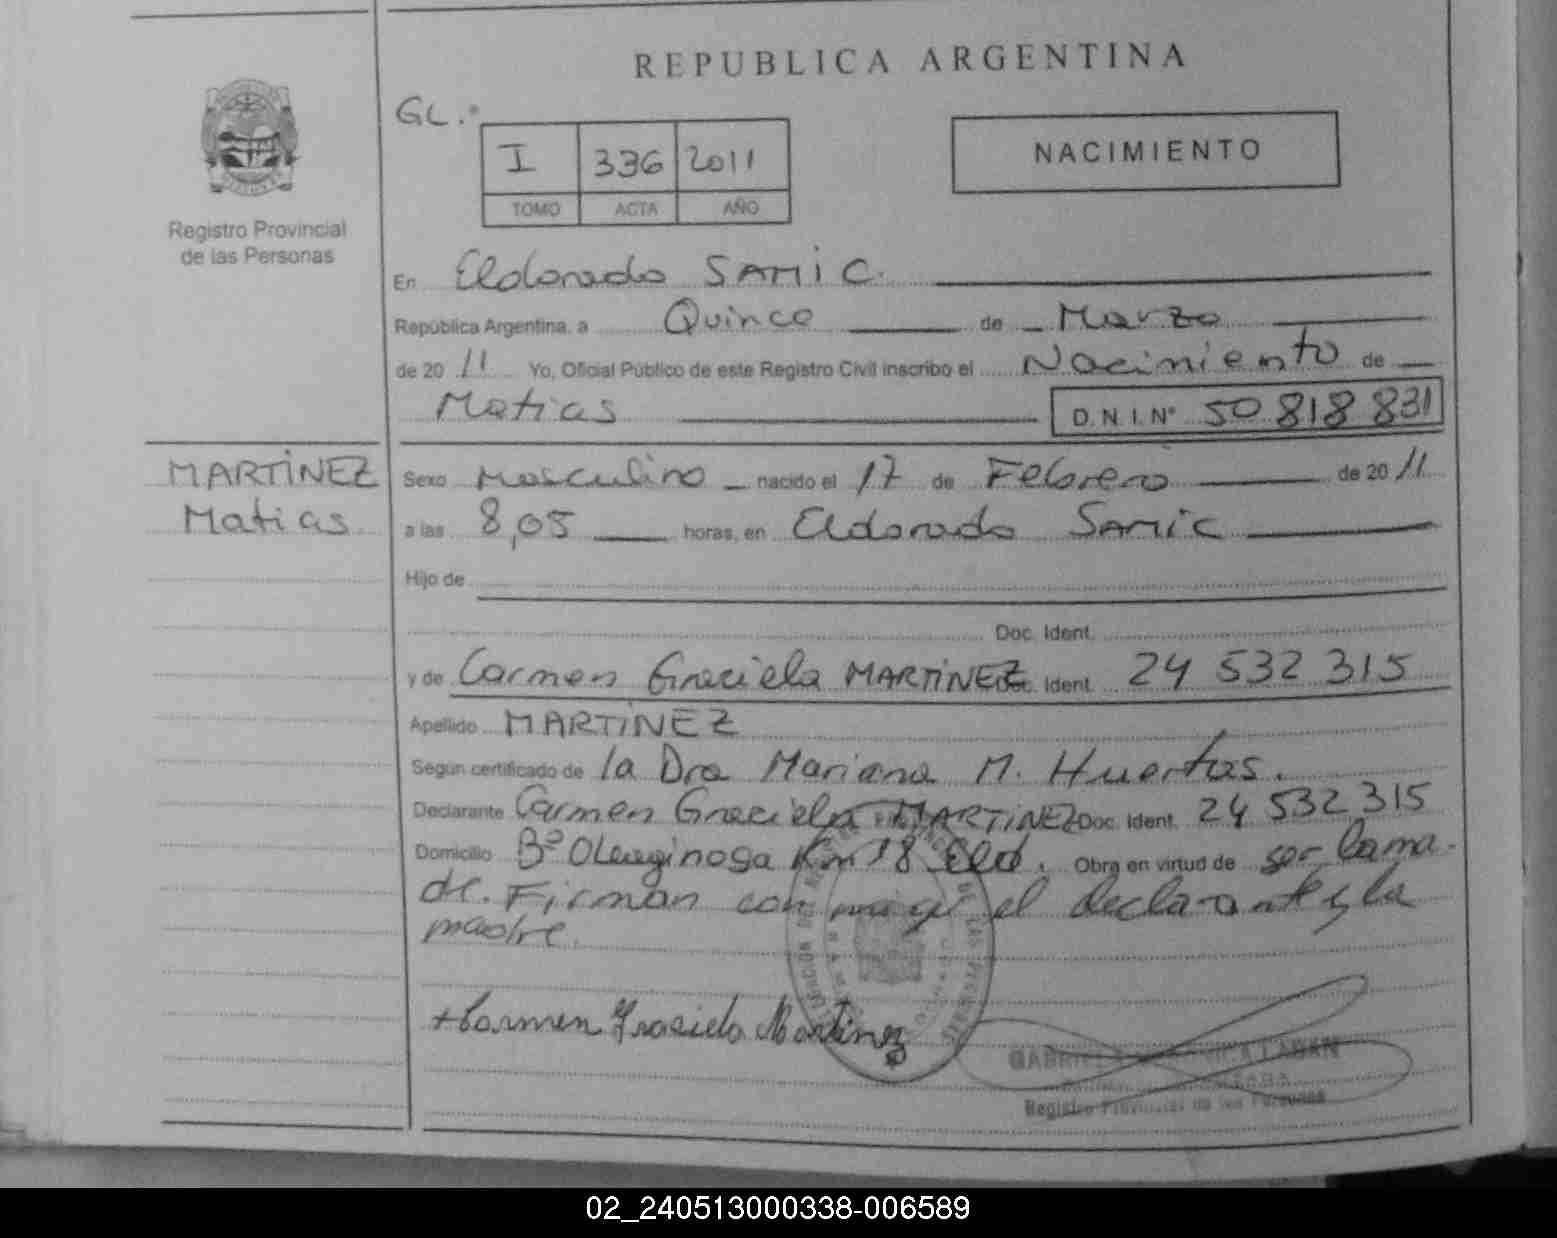 REPUBLICA ARGENTINA
GL.
I 336 2011
TOMO ACTA AÑO
NACIMIENTO
Registro Provincial
de las Personas
En Eldorado SAMIC.
República Argentina, a Quince de Marzo
de 2011 Yo, Oficial Público de este Registro Civil inscribo el Nacimiento de
Matias D.N.I.Nº 50 818 831
MARTiNEZ
Matias
Sexo Masculino nacido el 17 de Febrero de 2011
a las 8,05 horas, en Eldorado SAMIC
Hijo de
Doc. Ident.
y de Carmen Graciela MARTiNEZ Doc. Ident. 24 532 315
Apellido MARTiNEZ
Según certificado de la Dra Mariana M. Huertas.
Declarante Carmen Graciela MARTiNEZ Doc. Ident. 24 532 315
Domicilio Bº Oleaginosa Km 18 Eld. Obra en virtud de ser la ma
dre. Firman con migo el declarante y la
madre.
Carmen Graciela Martinez
DE LAS PERSONAS
Registro Provincial de las Personas
02_240513000338-006589